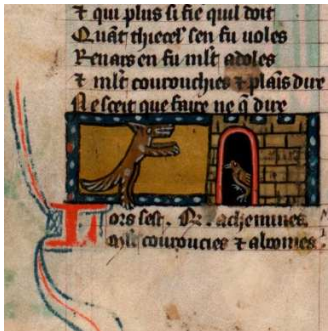 ⁊ qui plus si fie quil doit
Quāt thiecel sen fu uoles
Renars en fu ml̅t adoles
⁊ ml̅t courouchies ⁊ plaīs dire
Ne sceit que faire ne q̄ dire
Lors sest . R . achemines
Ml̅t couroucies ⁊